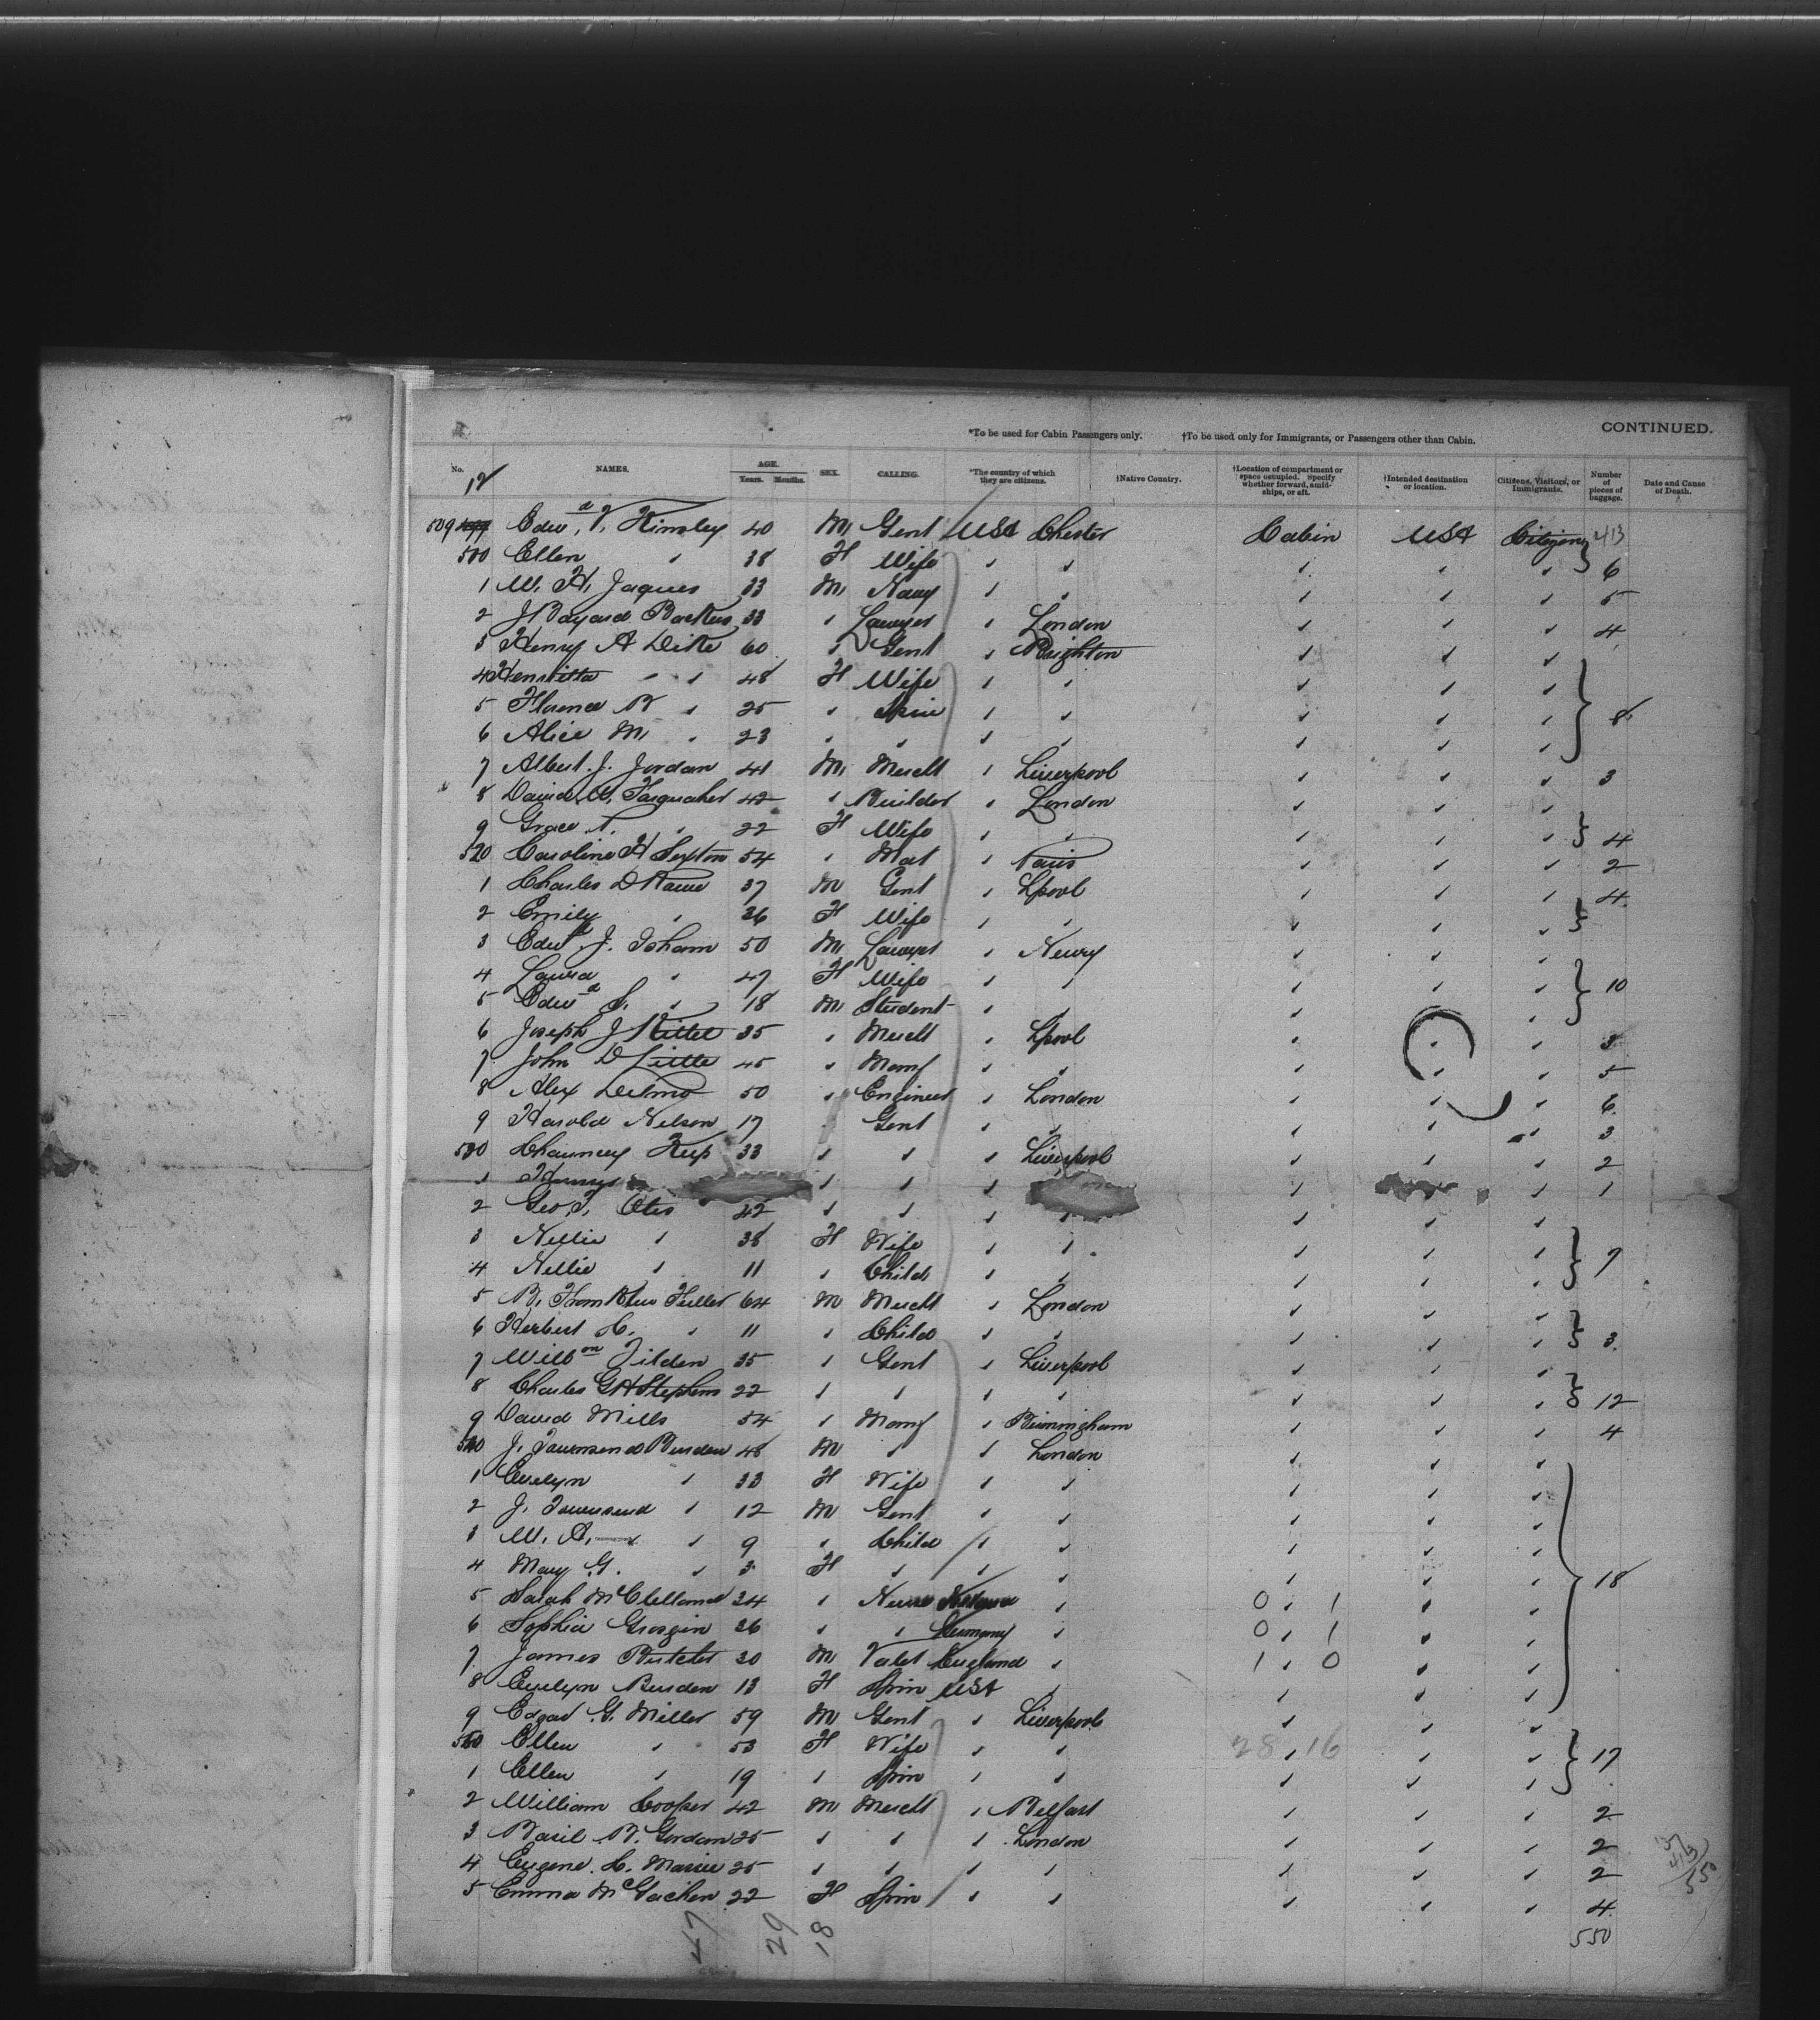 CONTINUED.
*To be used for Cabin Passengers only. †To be used only for Immigrants, or Passengers other than Cabin.
No. NAMES. AGE. Years. Months. SEX. CALLING. *The country of which they are citizens. †Native Country. †Location of compartment or space occupied. Specify whether forward, amidships, or aft. †Intended destination or location. Citizens, Visitors, or Immigrants. Number of pieces of baggage. Date and Cause of Death.
12
509 Edwd V. Kinsley 40 M Gent USA Chester Cabin USA Citizen 413
510 Ellen " 38 F Wife " " " " " 6
1 W. H. Jaques 33 M Navy " " " " " 5
2 J Bayard Backus 33 " Lawyer " London " " " 4
3 Henry A Dike 60 " Gent " Brighton " " "
4 Henrietta " " 48 F Wife " " " " "
5 Florence B " 25 " Spin " " " " " 8
6 Alice M " 23 " " " " " " "
7 Albert J. Jordan 41 M Mercht " Liverpool " " " 3
8 David W. Farquaher 42 " Builder " London " " "
9 Grace T. " 22 F Wife " " " " " 4
520 Caroline H Sexton 54 " Mat " Paris " " " 2
1 Charles D 37 M Gent " Lpool " " " 4
2 Emily " 26 F Wife " " " " "
3 Edwd J. 50 M Lawyer " Newry " " "
4 Laura " 47 F Wife " " " " " 10
5 Edwd S. " 18 M Student " " " " "
6 Joseph J 35 " Mercht " Lpool " " " 3
7 John D Little 45 " Manf " " " " " 5
8 Alex 50 " Engineer " London " " " 6
9 Harold Nelson 17 Gent " " " " " 3
530 Chauncey Kup 33 " " " Liverpool " " " 2
1 " " " " " 1
2 Geo. T. Otis 42 " " " " " " "
3 Nellie " 38 F Wife " " " " " 7
4 Nellie " 11 " Child " " " " "
5 B. Fuller 64 M Mercht " London " " "
6 Herbert H. " 11 " Child " " " " " 3
7 Willson Tilden 35 " Gent " Liverpool " " "
8 Charles G H Stephens 22 " " " " " " " 12
9 David Mills 54 " Manf " Birmingham " " " 4
540 J. Townsend Burden 48 M " " London " " "
1 Evelyn " 33 F Wife " " " " "
2 J. Townsend " 12 M Gent " " " " "
3 W. A. " 9 " Child " " " " "
4 Mary G. " 3 F " " " " " " 18
5 Sarah McClelland 24 " Nurse " 0 " 1 " "
6 Sophia 26 " " Germany " 0 " 1 " "
7 James Butcher 30 M Valet England " 1 " 0 " "
8 Evelyn Burden 13 F Spin USA " " " "
9 Edgar G. Miller 59 M Gent " Liverpool " " "
550 Ellen " 53 F Wife " " 28 " 16 " " 17
1 Ellen " 19 " Spin " " " " "
2 William Cooper 42 M Mercht " Belfast " " " 2
3 Basil B. Gordon 25 " " " London " " " 2
4 Eugene C. Massie 25 " " " " " " " 2
5 Emma McGachen 22 F Spin " " " " " 4
550
47 29 18